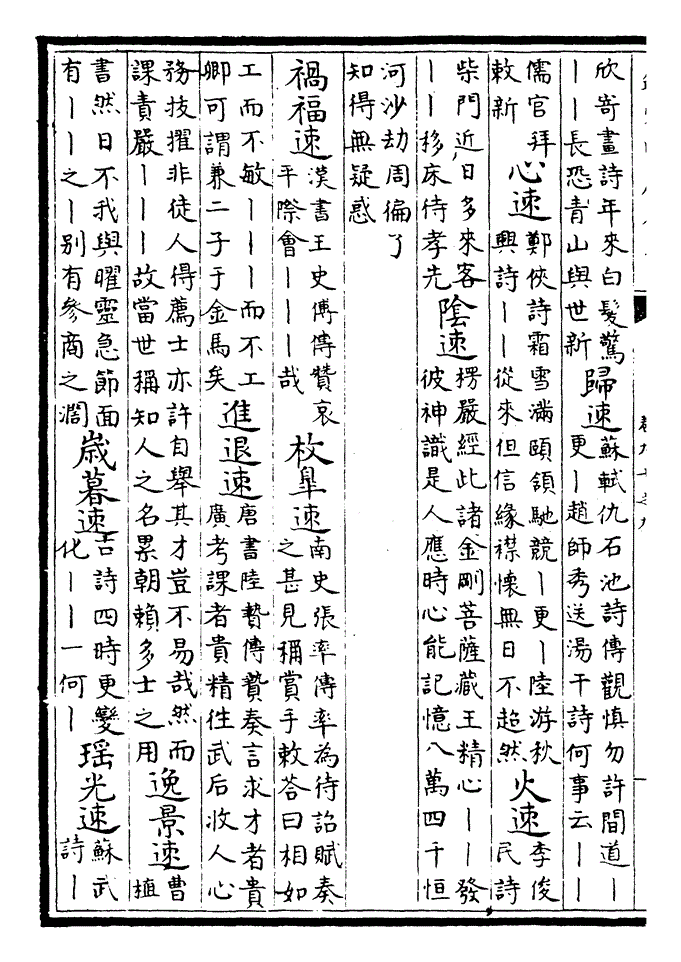 欣嵜畫詩年來白髮驚
——長恐青山與世新
歸速
蘇軾仇石池詩傳觀慎勿許間道—
更—趙師秀送湯干詩何事云——
儒官拜
敕新
心速
鄭俠詩霜雪滿頤頷馳競—更—陸游秋
興詩——從來但信緣襟懷無日不超然
火速
李俊
民詩
柴門近日多來客
——移床待孝先
陰速
楞嚴經此諸金剛菩薩藏王精心——發
彼神識是人應時心能記憶八萬四千恒
河沙劫周徧了
知得無疑惑
禍福速
漢書王史傅傳贊哀
平際會———哉
枚臯速
南史張率傳率為待詔賦奏
之甚見稱賞手敕答曰相如
工而不敏———而不工
卿可謂兼二子于金馬矣
進退速
唐書陸贄傳贄奏言求才者貴
廣考課者貴精往武后收人心
務技擢非徒人得薦士亦許自舉其才豈不易哉然而
課責嚴———故當世稱知人之名累朝賴多士之用
逸景速
曹
植
書然日不我與曜靈急節面
有——之—別有參商之濶
歲暮速
古詩四時更變
化——一何—
瑤光速
蘇武
詩—